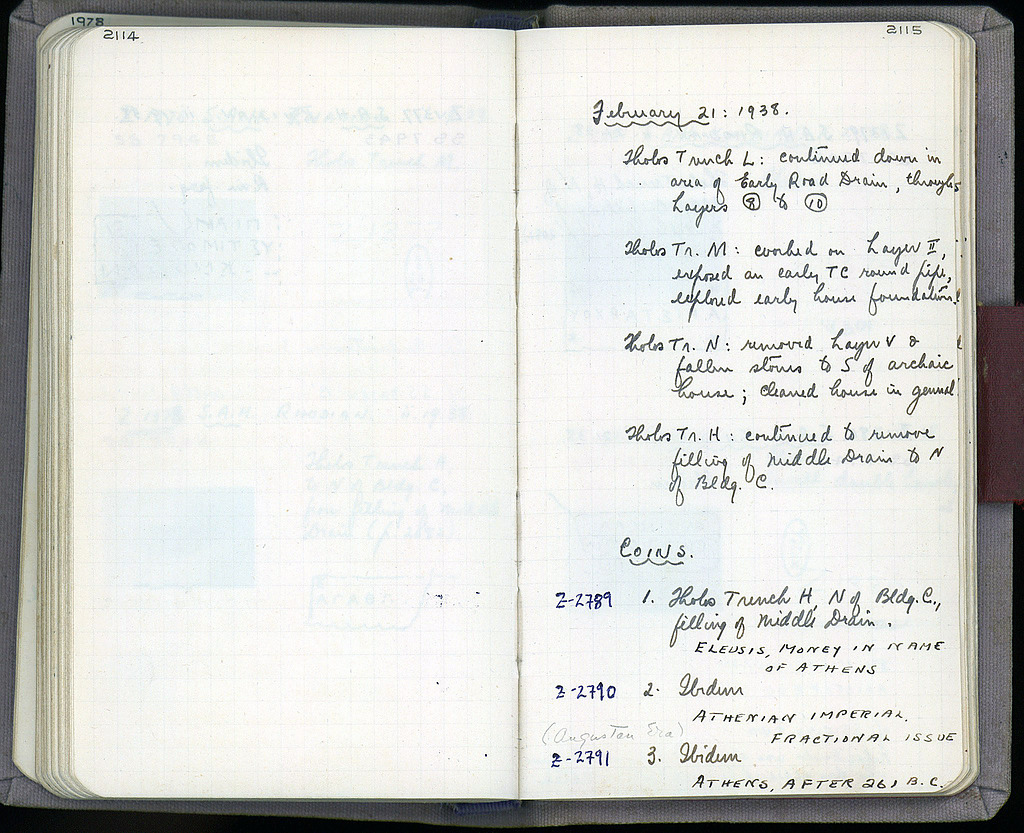 1978
2114
2115
February 21: 1938.
Tholos Trench L: continued down in
area of Early Road Drain, through
Layers ⑧ to ⑩
Tholos Tr. M: worked on Layer II,
exposed an early TC round pipe,
explored early house foundation.
Tholos Tr. N: removed Layer V &
fallen stones to S of archaic
house; cleaned house in general.
Tholos Tr. H: continued to remove
filling of Middle Drain to N
of Bldg. C.
COINS.
Z-2789 1. Tholos Trench H, N of Bldg. C.,
filling of Middle Drain.
ELEUSIS, MONEY IN NAME
OF ATHENS
Z-2790 2. Ibidem
ATHENIAN IMPERIAL,
(Augustan Era) FRACTIONAL ISSUE
Z-2791 3. Ibidem
ATHENS, AFTER 261 B.C.